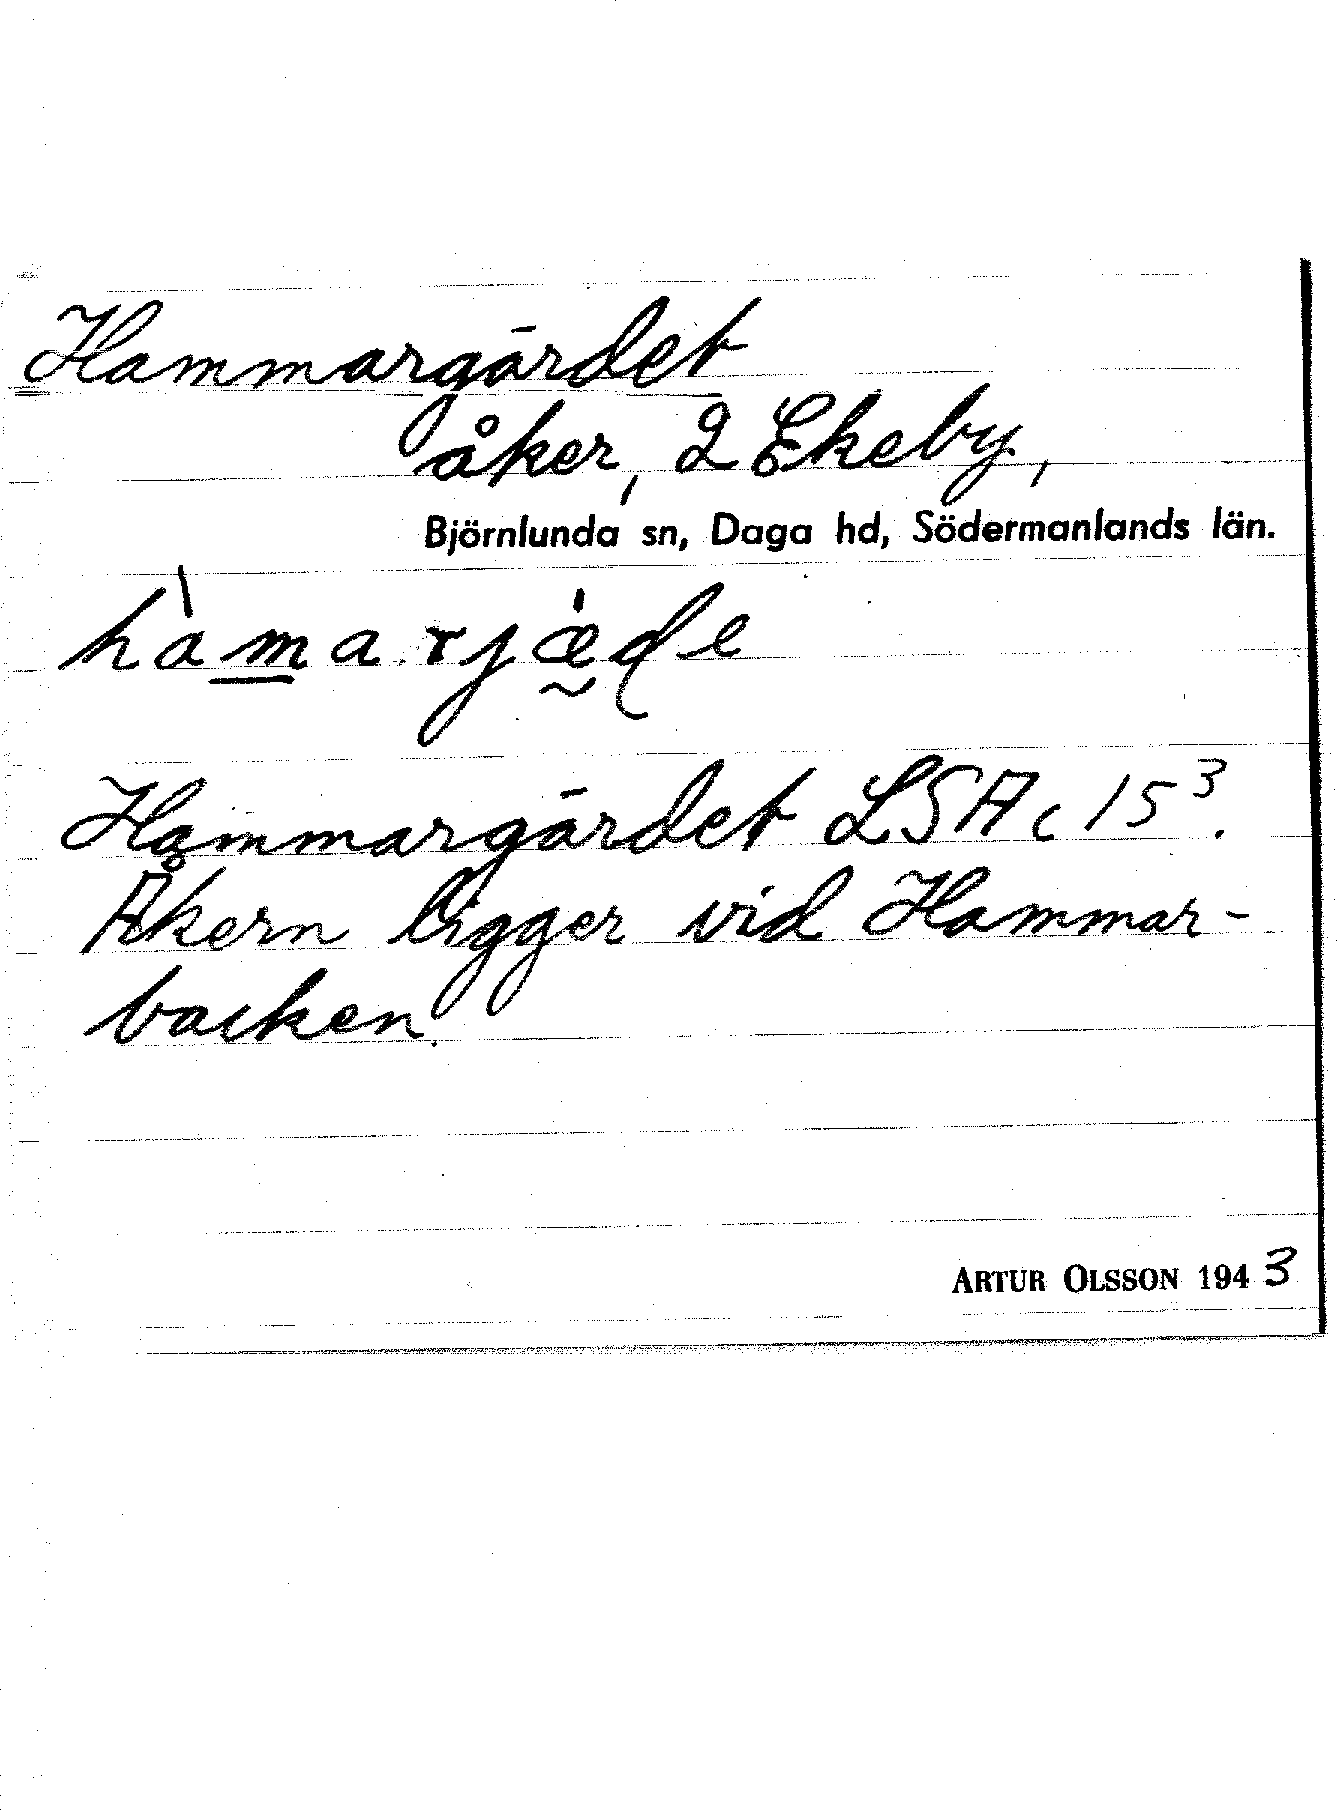 Hammargärdet
åker, 2 Ekeby,
Björnlunda sn, Daga hd, Södermanlands län.
hàmarjæ̀ɖe
Hammargärdet LSA c 15³.
Åkern ligger vid Hammar-
backen.
ARTUR OLSSON 1943